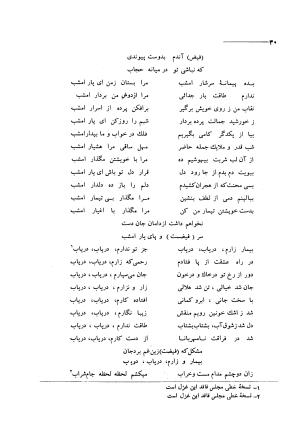 ۳۰
(فیض) آندم بدوست پیوندی
که نباشی تو در میانه حجاب
بده پیمانهٔ سرشار امشب مرا بستان زمن ای یار امشب
ندارم طاقت بار جدائی مرا ازدوش من بردار امشب
نقاب من ز روی خویش برگیر برافکن پرده از اسرار امشب
ز خورشید جمالت پرده بردار شبم را روزکن ای یار امشب
بیا از یکدگر کامی بگیریم فلک در خواب و ما بیدار امشب
شب قدر و ملایک جمله حاضر میان ساقی مرا هشیار امشب
از آن لب شربت بیهوشیم ده مرا با خویشتن مگذار امشب
بیوت دم بدم از جا رود دل قرار دل تو باش ای یار امشب
بسی محنت که از هجران کشیدم دلم را باز ده دلدار امشب
ببالینم دمی از لطف بنشین مرا مگذار بی تیمار امشب
بدست خویشتن تیمار من کن مرا مگذار با اغیار امشب
نخواهم داشت ازدامان جان دست
سر (فیضست) و پای یار امشب
بیمار زارم، دریاب، دریاب جز تو ندارم، دریاب، دریاب
در راه عشقت از پا فتادم رحمی که زارم، دریاب، دریاب
دور از رخ تو درخاک و درخون جان می‌سپارم، دریاب، دریاب
جان شد خیالی، تن شد هلالی زار و نزارم، دریاب، دریاب
با سخت جانی، ابرو کمانی افتاده کارم، دریاب، دریاب
شد زاشک خونین رویم منقش زیبا نگارم، دریاب، دریاب
دل شد زشوق آب، بشتاب بشتاب طاقت ندارم، دریاب، دریاب
شد در فراقت ناسور مدام در دریاب، دریاب
مشکل که (فیضت) زین غم بردجان
بیمار و زارم، دریاب، دریاب
زان دوچشم مدام مست و خراب میکشم لحظه لحظه جام شراب
۱- نسخهٔ خطی مجلس فاقد این غزل است
۲- نسخهٔ خطی مجلس فاقد این غزل است